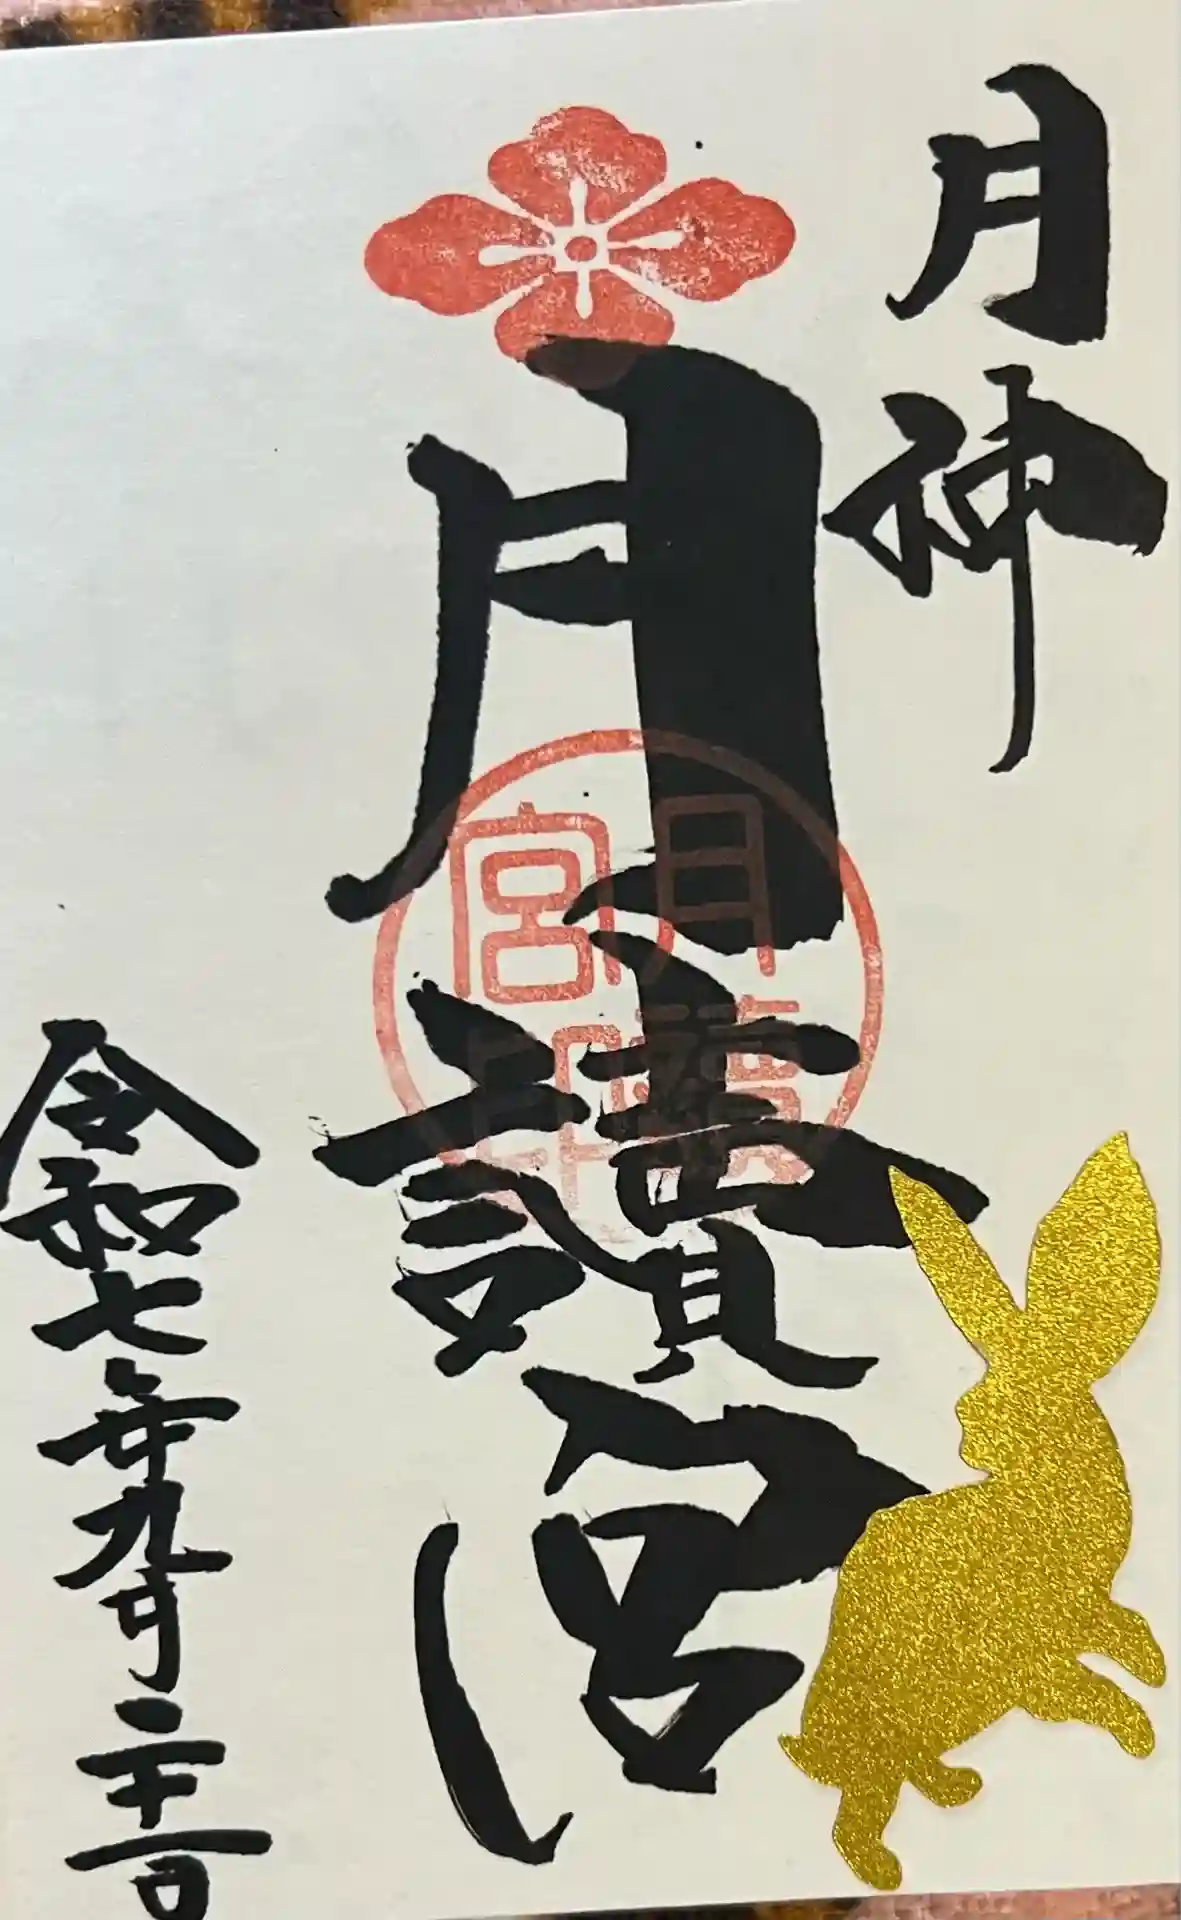 月神
月讀宮
月讀宮印
令和七年九月二十一日